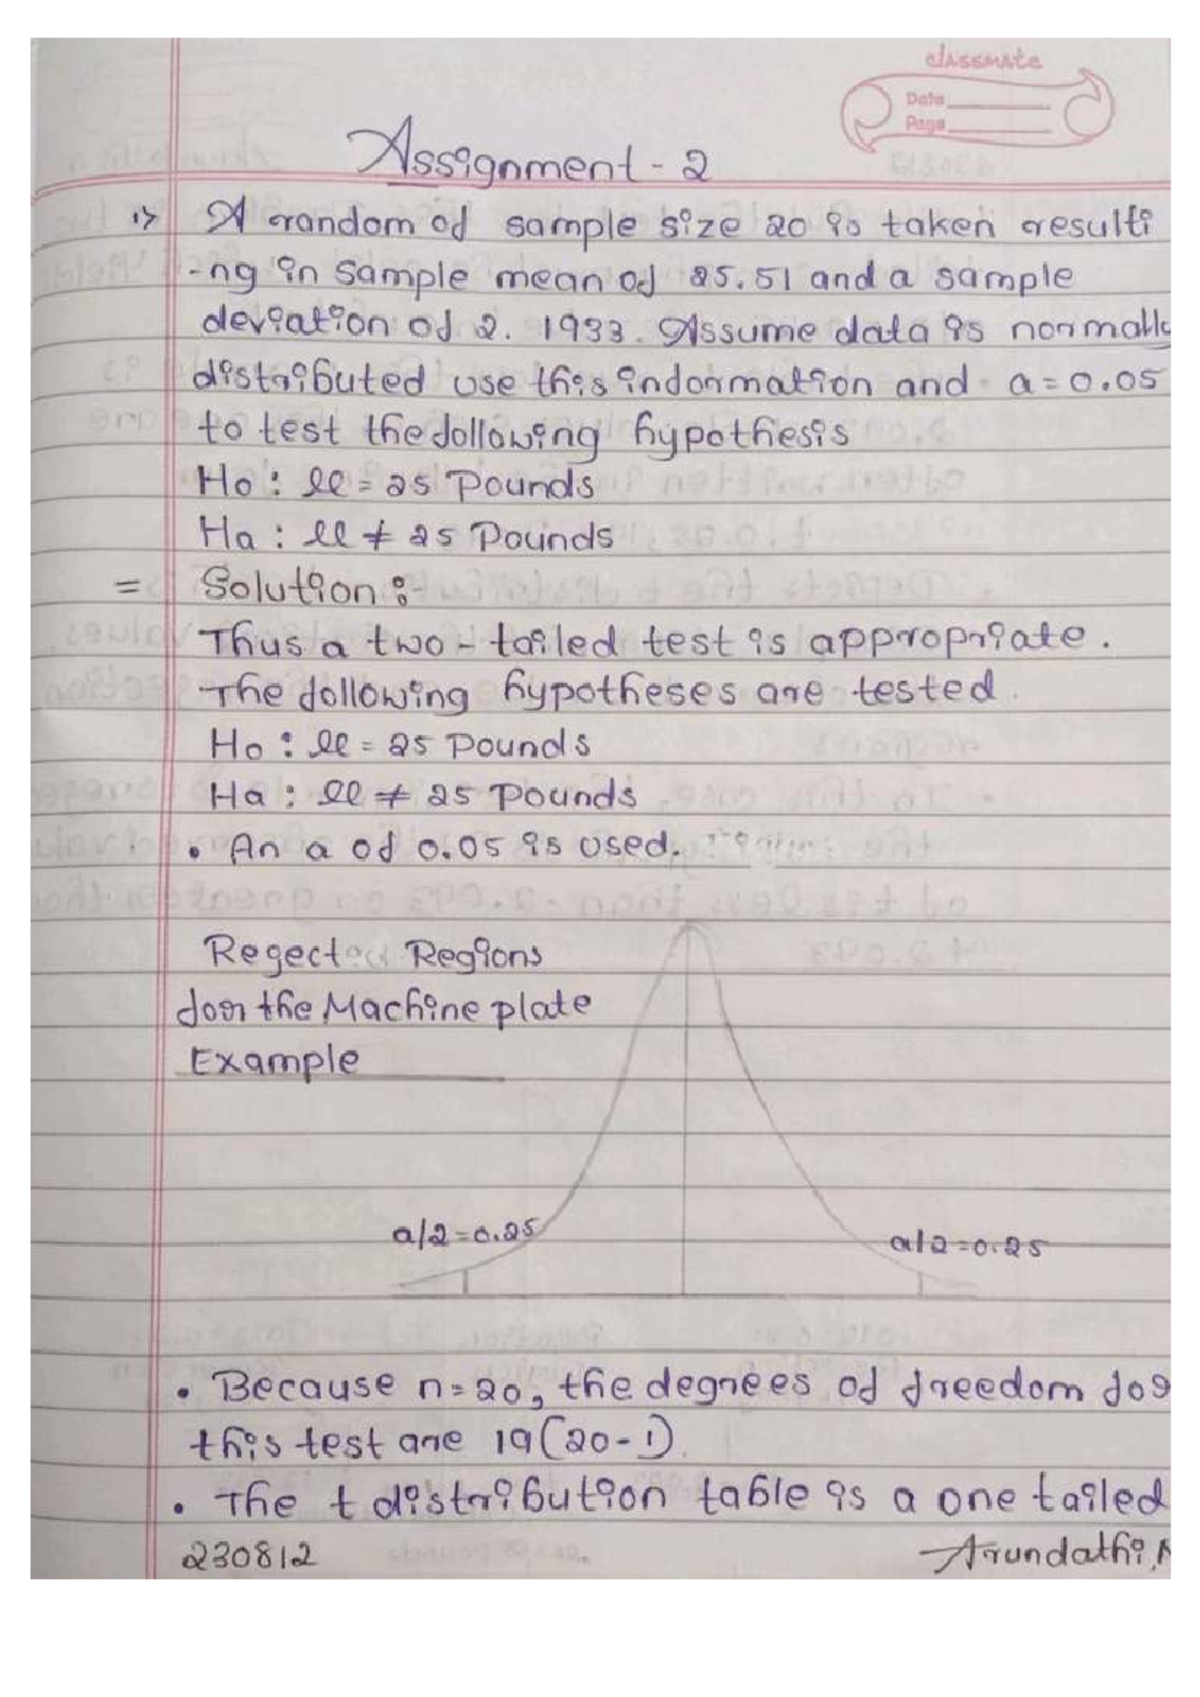 classmate
Date
Page
Assignment - 2
1> A random of sample size 20 is taken resulti
-ng in sample mean of 25.51 and a sample
deviation of 2. 1933. Assume data is normally
distributed use this information and a=0.05
to test the following hypothesis
Ho : µ = 25 Pounds
Ha : µ ≠ 25 Pounds
= Solution :-
Thus a two - tailed test is appropriate.
The following hypotheses are tested.
Ho : µ = 25 Pounds
Ha : µ ≠ 25 Pounds
• An a of 0.05 is used.
Regected Regions
for the Machine plate
Example
a/2=0.25
a/2=0.25
• Because n=20, the degrees of freedom for
this test are 19(20-1).
• The t distribution table is a one tailed
230812
Arundathi.